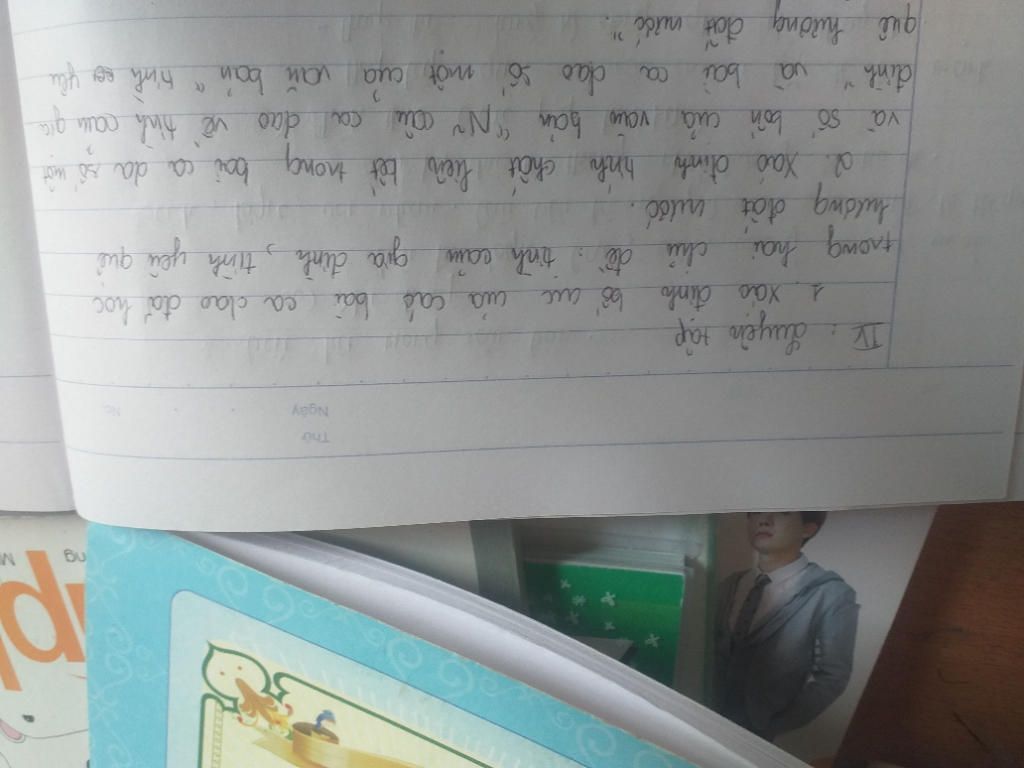 Thứ
Ngày
No.
IV: Luyện tập
1. Xác định bố cục của các bài ca dao đã học
trong hai chủ đề: tình cảm gia đình, tình yêu quê
hương đất nước.
2. Xác định tính chất liên kết trong bài ca dao số một
và số bốn của văn bản "N~ câu ca dao về tình cảm gia
đình" và bài ca dao số một của văn bản "tình yêu
quê hương đất nước".